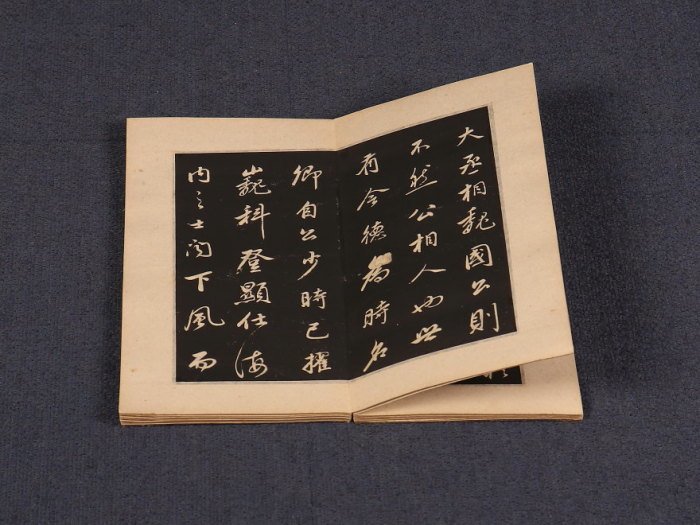 大丞相魏國公則
不然公相人也世
有令德為時名
卿自公少時已擢
巍科登顯仕海
内之士聞下風而